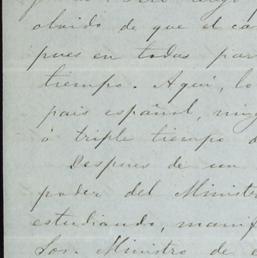 olvido de que el ca
pues en todas par
tiempo. Aquí, lo
pais español, ning
ó triple tiempo d
Despues de un
poder del Ministr
estudiando, manif
Sor. Ministro de